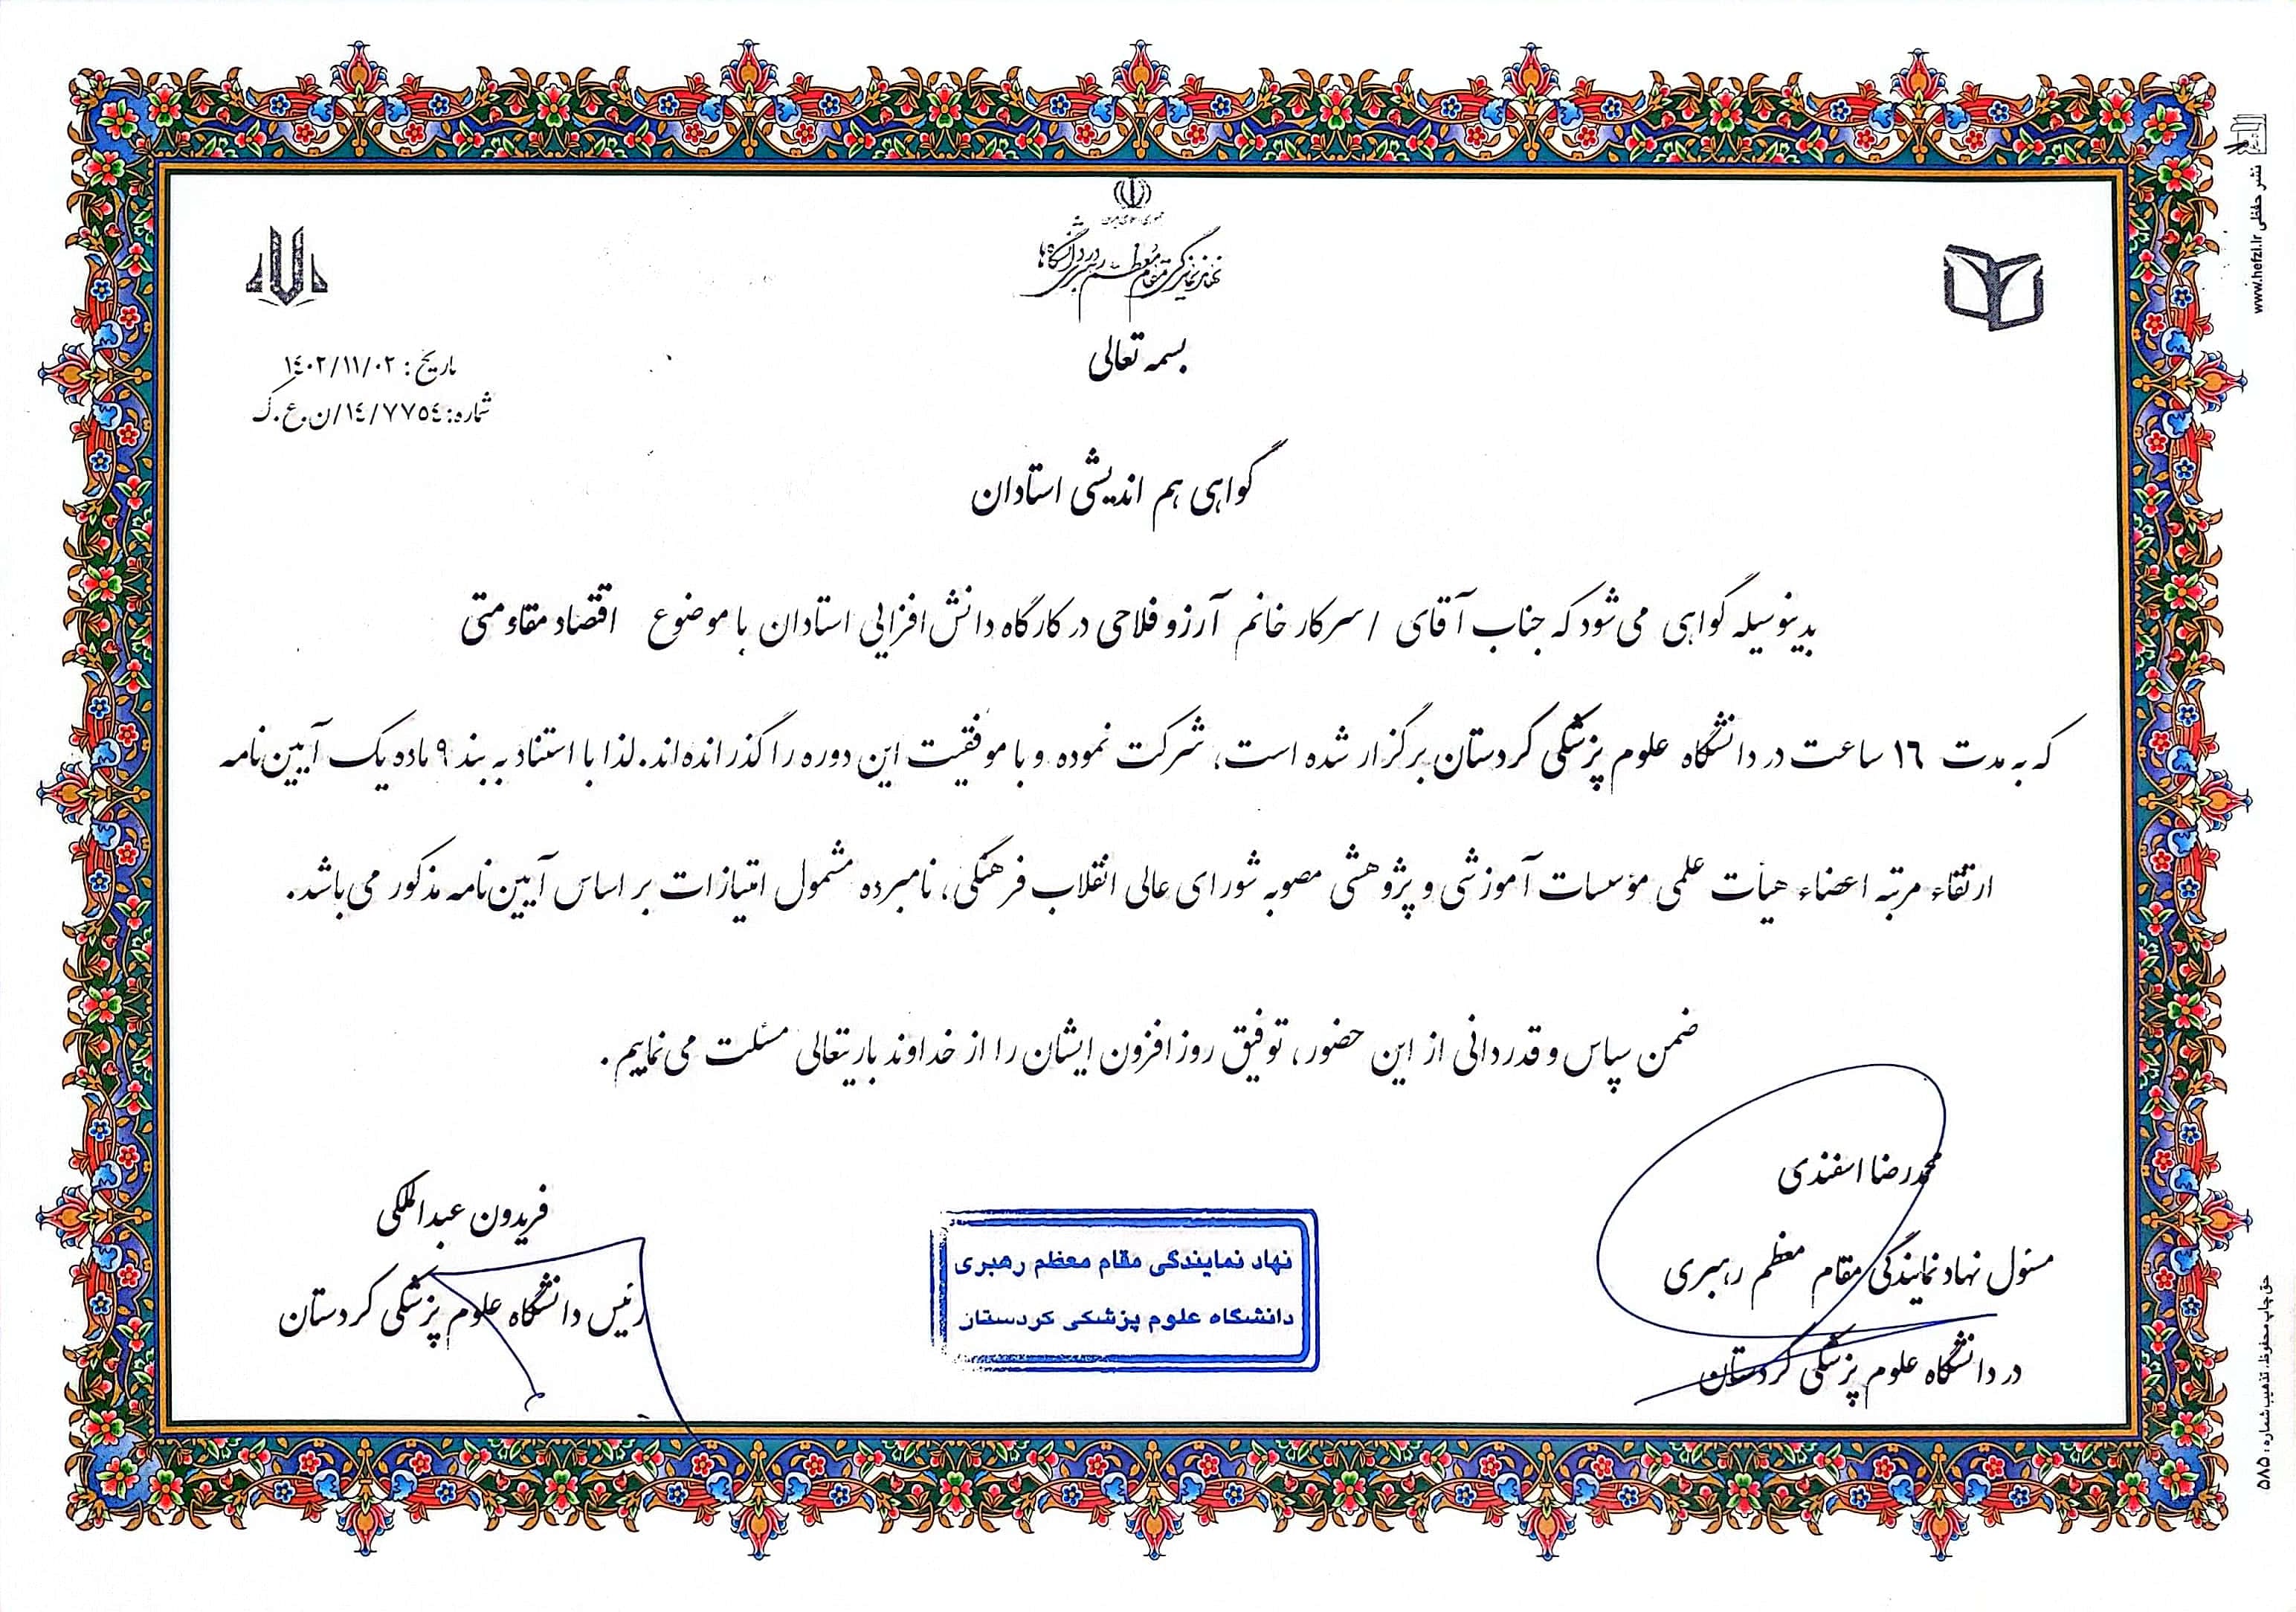 جمهوری اسلامی ایران
نهاد نمایندگی مقام معظم رهبری در دانشگاه‌ها
بسمه تعالی
تاریخ: ١٤٠٢/١١/٠٢
شماره: ١٤/٧٧٥٤/ن.ع.ک
گواهی هم اندیشی استادان
بدینوسیله گواهی می‌شود که جناب آقای / سرکار خانم آرزو فلاحی در کارگاه دانش افزایی استادان با موضوع اقتصاد مقاومتی
که به مدت ١٦ ساعت در دانشگاه علوم پزشکی کردستان برگزار شده است، شرکت نموده و با موفقیت این دوره را گذرانده‌اند. لذا با استناد به بند ٩ ماده یک آیین‌نامه
ارتقاء مرتبه اعضاء هیأت علمی مؤسسات آموزشی و پژوهشی مصوبه شورای عالی انقلاب فرهنگی، نامبرده مشمول امتیازات بر اساس آیین‌نامه مذکور می‌باشد.
ضمن سپاس و قدردانی از این حضور، توفیق روز افزون ایشان را از خداوند باریتعالی مسئلت می‌نماییم.
محمدرضا اسفندی
مسئول نهاد نمایندگی مقام معظم رهبری
در دانشگاه علوم پزشکی کردستان
نهاد نمایندگی مقام معظم رهبری
دانشگاه علوم پزشکی کردستان
فریدون عبدالملکی
رئیس دانشگاه علوم پزشکی کردستان
نشر حفظی www.hefzi.ir
حق چاپ محفوظ، تذهیب شماره: ۵۸۵